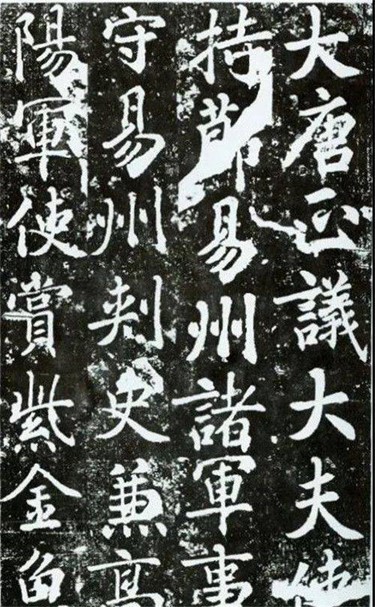 大唐正議大夫使
持節易州諸軍事
守易州刾史兼高
陽軍使賞紫金魚